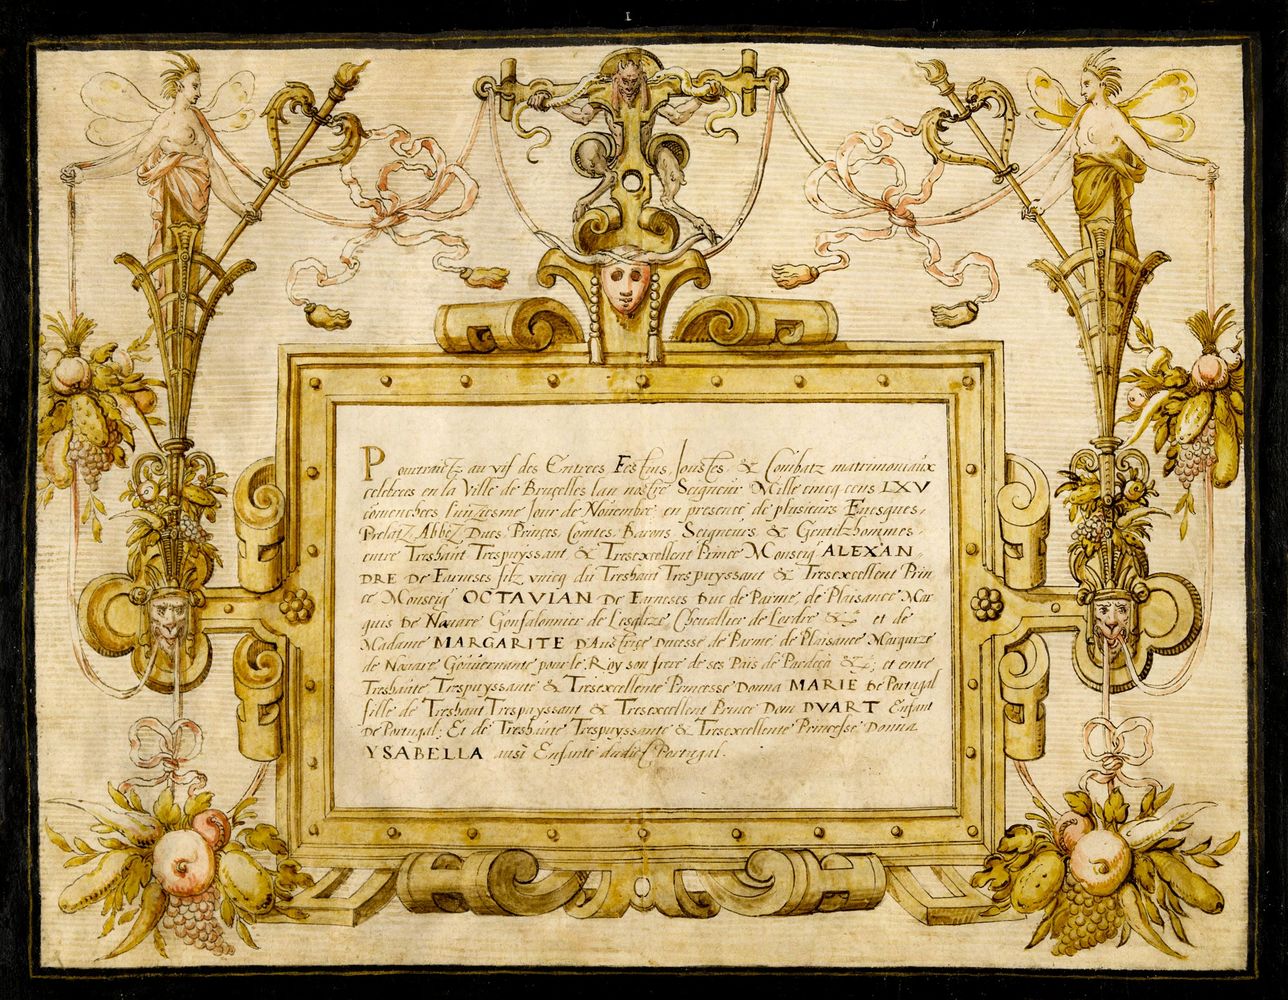 I
Pourtraictz au vif des Entrees Festins, Joustes & Combatz matrimoniaux
celebrees en la Ville de Bruxelles lan nostre Seigneur Mille cincq cens LXV
comenchees l'unziesme Jour de Novembre en presence de plusieurs Evesques,
Prelatz, Abbez, Ducs, Princes, Comtes, Barons, Seigneurs, & Gentilzhommes,
entre Treshault Trespuyssant & Tresexcellent Prince Monseigr ALEXAN
DRE De Farneses filz vnicq du Treshault Trespuyssant & Tresexcellent Prin
ce Monseigr OCTAVIAN De Farneses Duc de Parme, de Plaisance Mar
quis de Novare Gonfalonnier de L'esglize Chevallier de L'ordre &ca et de
Madame MARGARITE D'Austrice Ducesse de Parme, de Plaisance Marquize
de Novare Gouvernante pour le Roy son frere de ses Pais de Pardeça &c; et entre
Treshaulte Trespuyssante & Tresexcellente Princesse Donna MARIE De Portugal
fille de Treshault Trespuyssant & Tresexcellent Prince Dom DVART Enfant
De Portugal; Et de Treshaulte Trespuyssante & Tresexcellente Princesse Donna
YSABELLA aussi Enfante dudict Portugal.